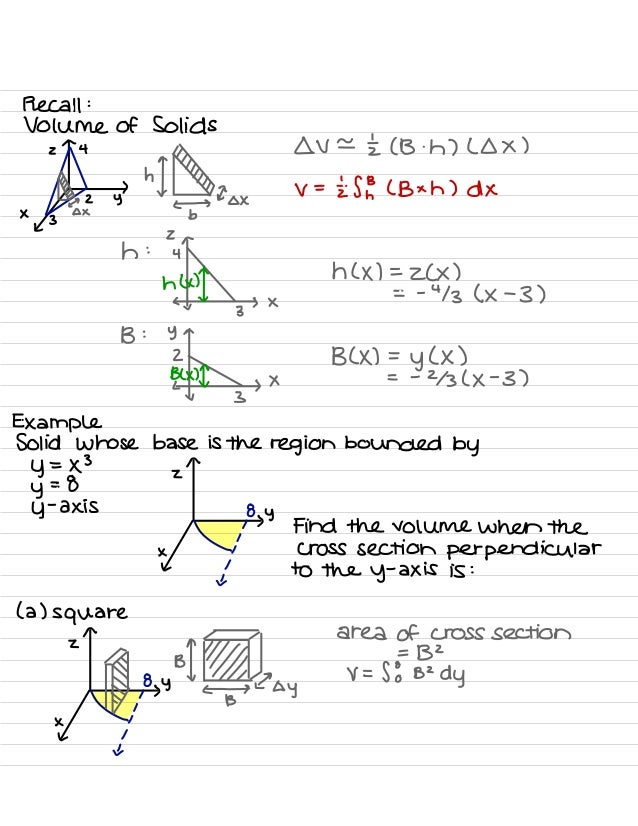 Recall:
Volume of Solids
z 4
2 y
x 3 Δx
h
b Δx
ΔV ≃ 1/2 (B·h)(Δx)
V = 1/2 ∫ₕᴮ (B×h) dx
h: z
4
h(x)
3 x
h(x) = z(x)
= -4/3 (x-3)
B: y
2
B(x)
3 x
B(x) = y(x)
= -2/3 (x-3)
Example
Solid whose base is the region bounded by
y = x³
y = 8
y-axis
z
8 y
x
Find the volume when the
cross section perpendicular
to the y-axis is:
(a) square
z
8 y
x
B
B Δy
area of cross section
= B²
V = ∫₀⁸ B² dy